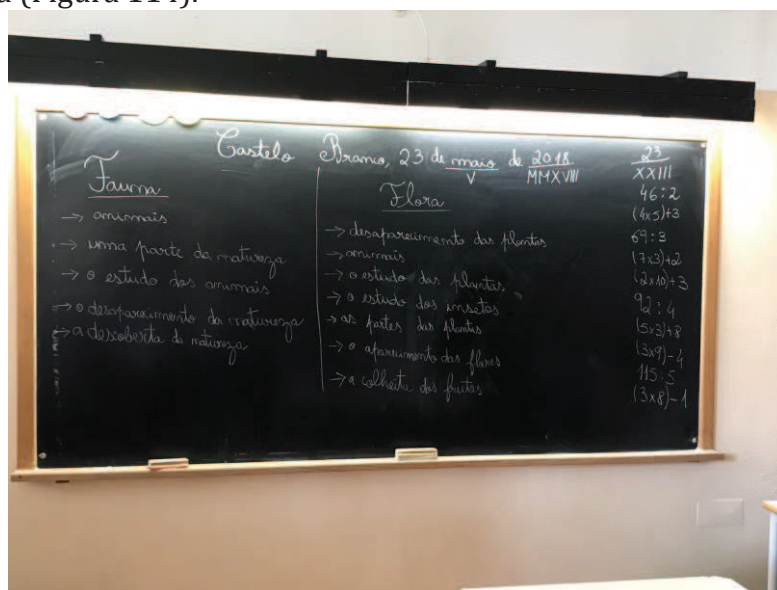 a (Figura 114).
Castelo Branco, 23 de maio de 2018
V MMXVIII
Fauna
→ animais
→ uma parte da natureza
→ o estudo dos animais
→ o desaparecimento da natureza
→ a descoberta da natureza
Flora
→ desaparecimento das plantas
→ animais
→ o estudo das plantas
→ o estudo dos insetos
→ as partes das plantas
→ o aparecimento das flores
→ a colheita dos frutos
23
XXIII
46:2
(4x5)+3
69:3
(7x3)+2
(2x10)+3
92:4
(5x3)+8
(3x9)-4
115:5
(3x8)-1